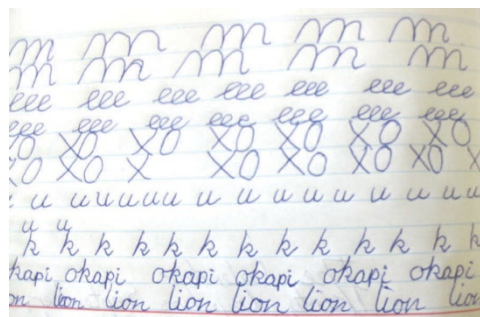 m m m m m
m m m m m
eee eee eee eee eee eee eee
eee eee eee eee eee eee eee
XO XO XO XO XO XO XO
XO XO X XO XO XO XO X
u u u u u u u u u u u u u u u
u u
k k k k k k k k k k k k k
okapi okapi okapi okapi okapi okapi
lion lion lion lion lion lion lion